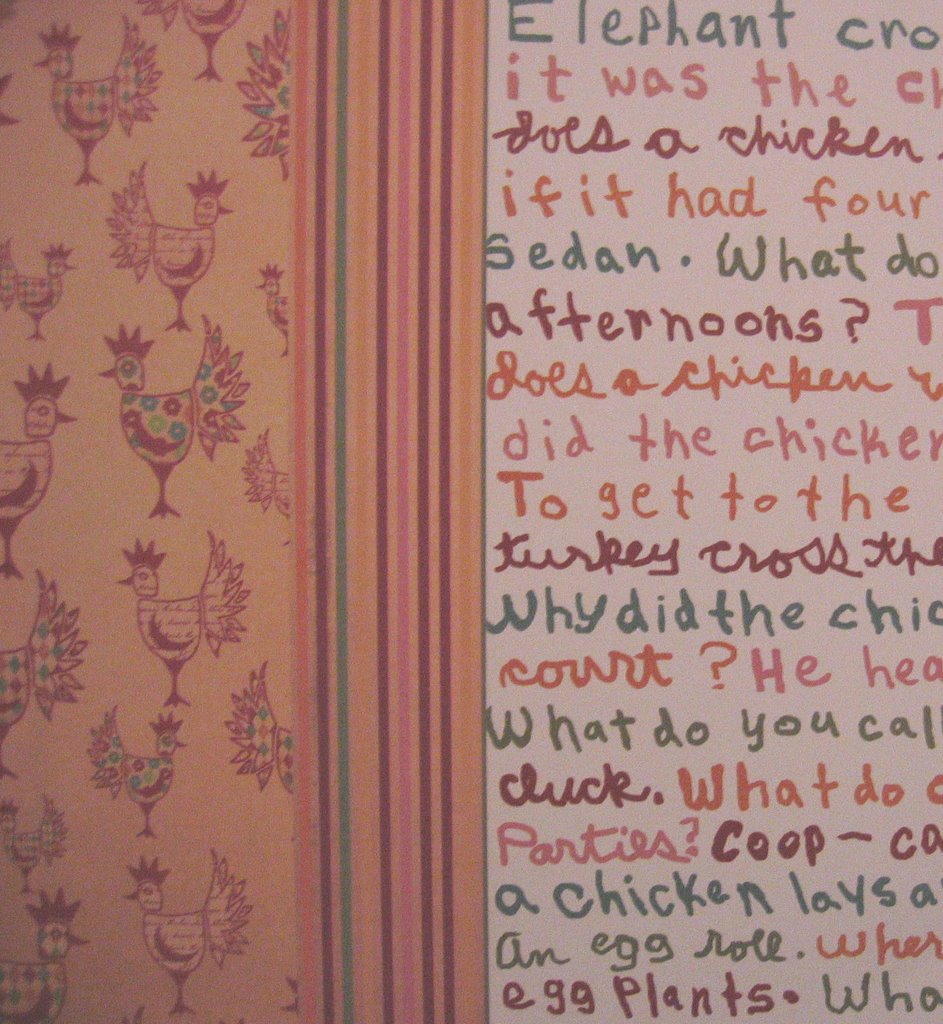 Elephant cro
it was the ch
does a chicken
if it had four
sedan. What do
afternoons? T
does a chicken
did the chicken
To get to the
turkey cross the
Why did the chic
court? He hea
What do you call
cluck. What do c
Parties? Coop-ca
a chicken lays a
An egg roll. Wher
egg Plants. Wha